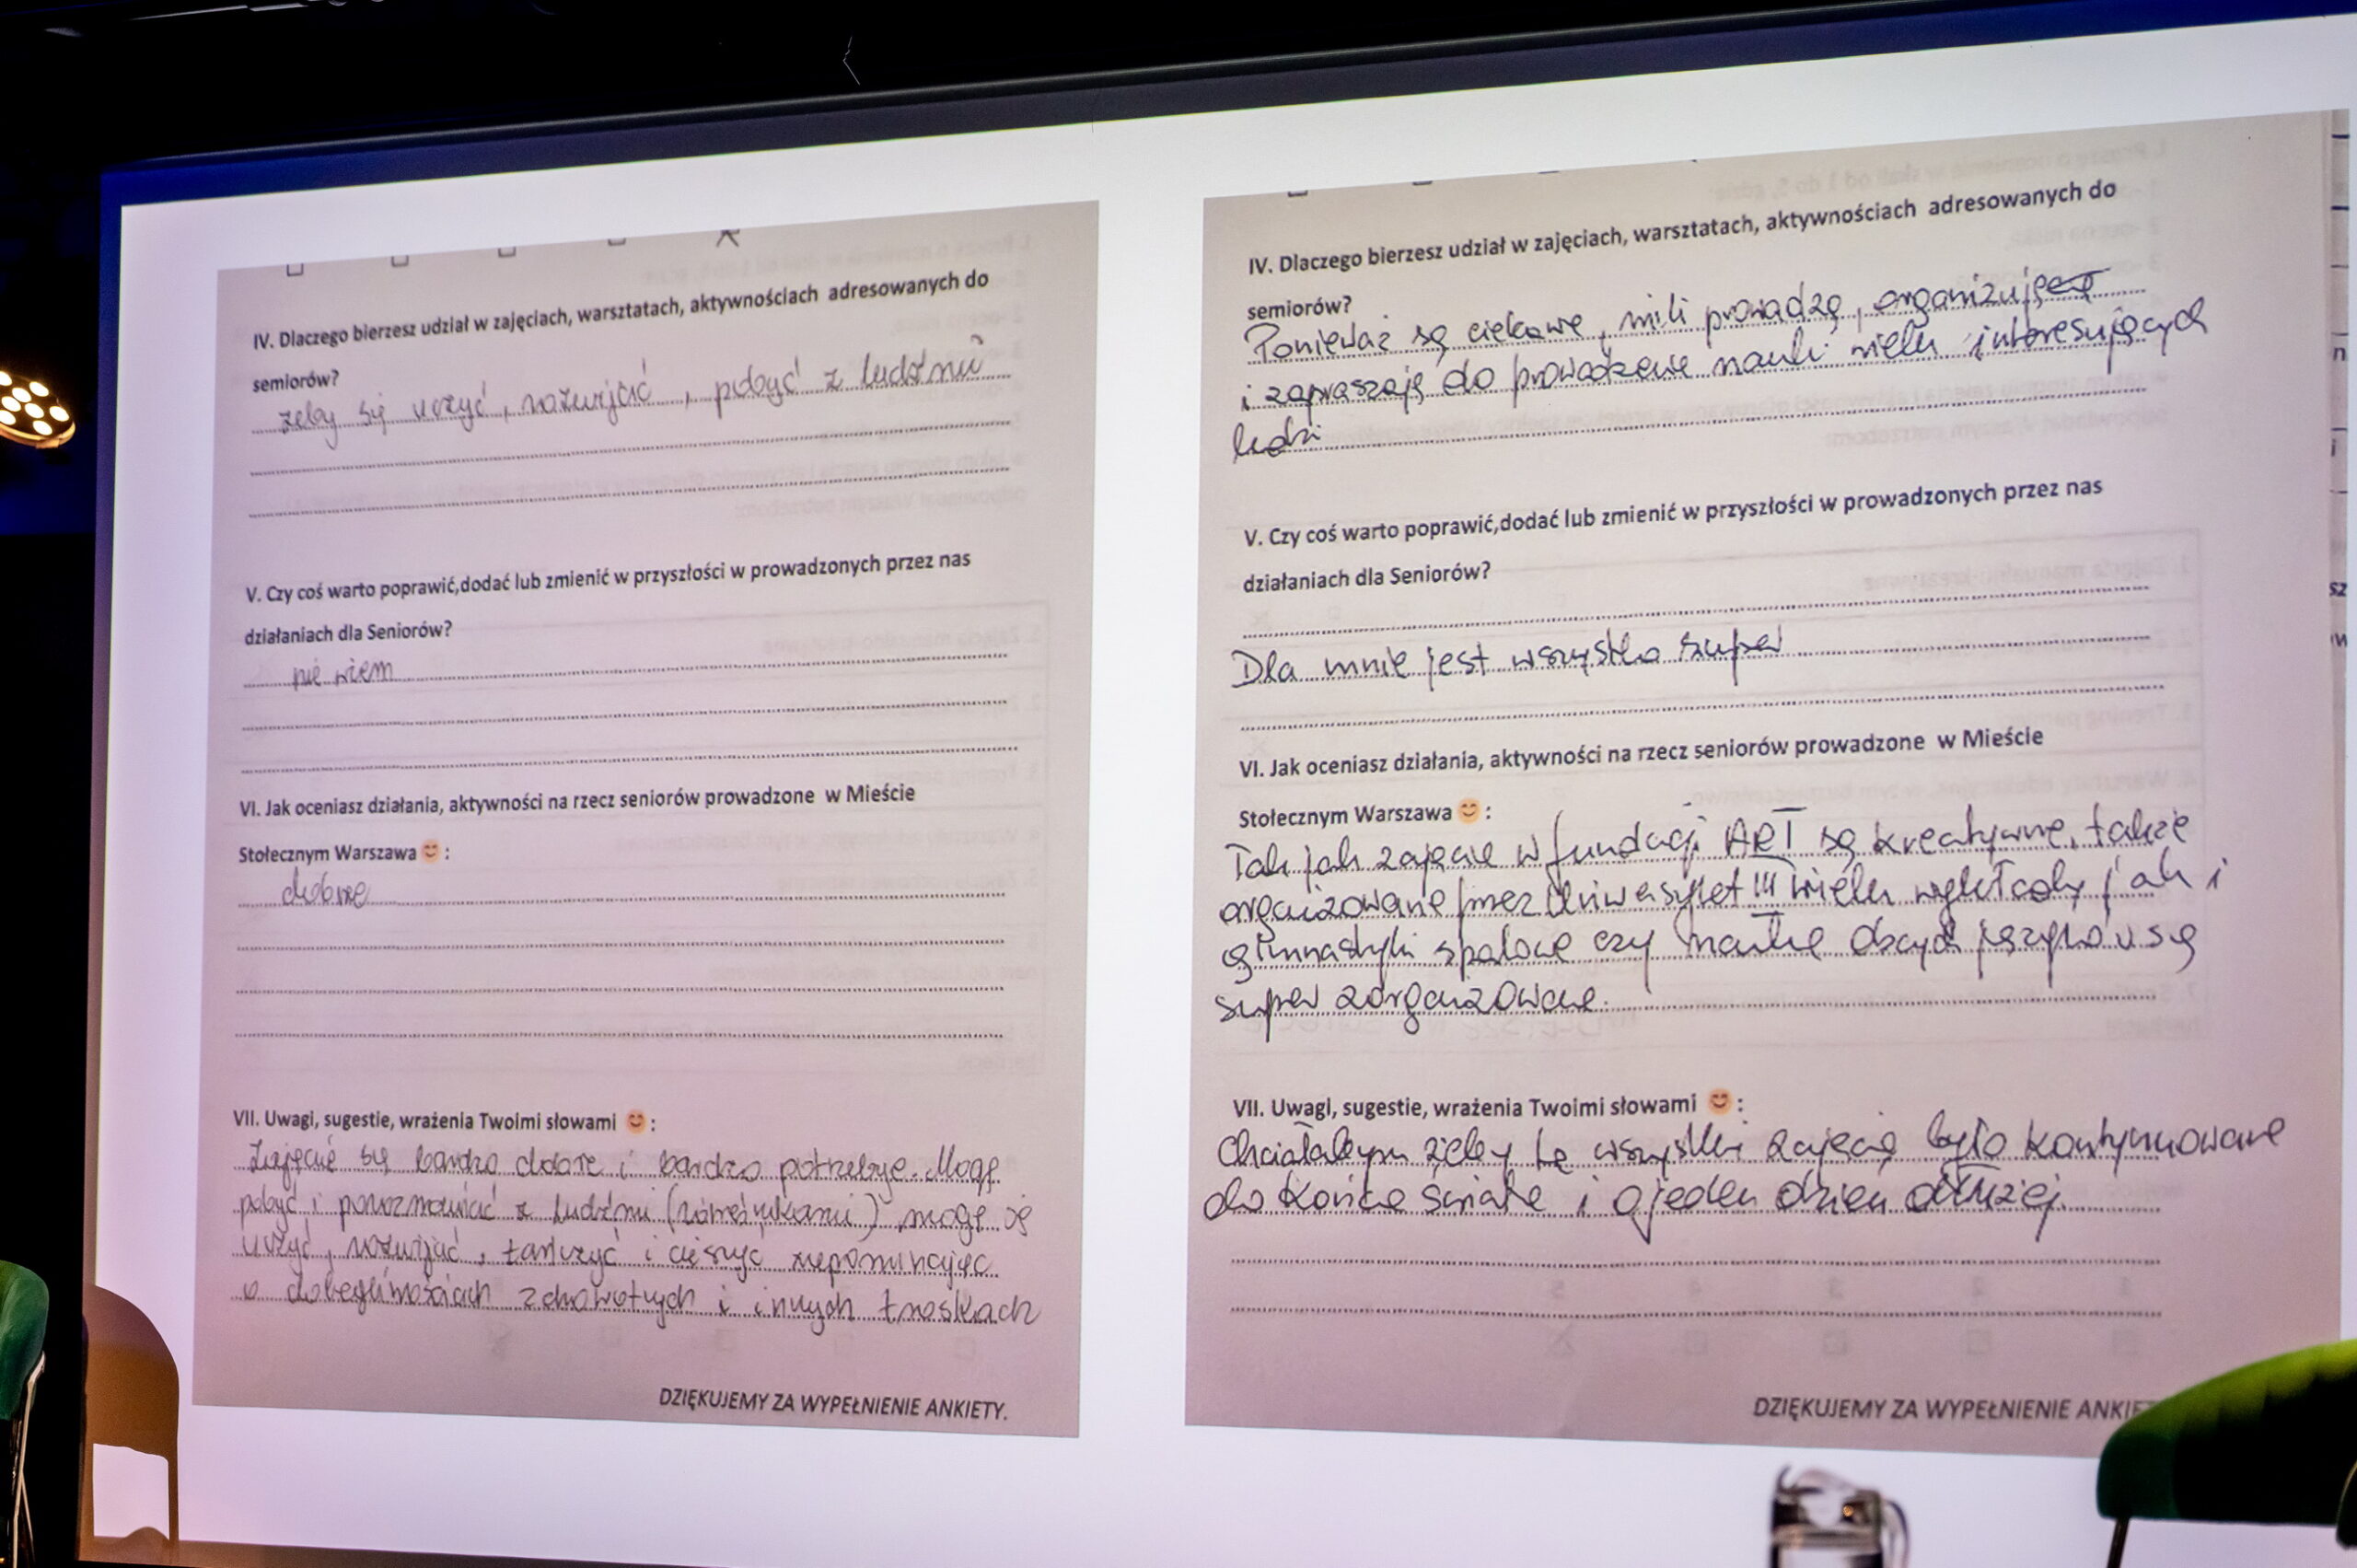 IV. Dlaczego bierzesz udział w zajęciach, warsztatach, aktywnościach adresowanych do
semiorów?
żeby się uczyć, rozwijać, pobyć z ludźmi
V. Czy coś warto poprawić,dodać lub zmienić w przyszłości w prowadzonych przez nas
działaniach dla Seniorów?
nie wiem
VI. Jak oceniasz działania, aktywności na rzecz seniorów prowadzone w Mieście
Stołecznym Warszawa 😊 :
dobrze
VII. Uwagi, sugestie, wrażenia Twoimi słowami 😊 :
Zajęcia są bardzo dobre i bardzo potrzebne. Mogę
pobyć i porozmawiać z ludźmi (rówieśnikami) mogę się
uczyć, rozwijać, tańczyć i cieszyć zapominając
o dolegliwościach zdrowotnych i innych troskach
DZIĘKUJEMY ZA WYPEŁNIENIE ANKIETY.
IV. Dlaczego bierzesz udział w zajęciach, warsztatach, aktywnościach adresowanych do
semiorów?
Ponieważ są ciekawe, mili prowadzą, organizują
i zapraszają do prowadzenie nauki wielu interesujących
ludzi
V. Czy coś warto poprawić,dodać lub zmienić w przyszłości w prowadzonych przez nas
działaniach dla Seniorów?
Dla mnie jest wszystko super
VI. Jak oceniasz działania, aktywności na rzecz seniorów prowadzone w Mieście
Stołecznym Warszawa 😊 :
Tak jak zajęcie w fundacji ART są kreatywne, także
organizowane przez Uniwersytet III wieku wykłady jak i
gimnastyki czy nauka obcych języków są
super zorganizowane.
VII. Uwagi, sugestie, wrażenia Twoimi słowami 😊 :
Chciałabym żeby te wszystkie zajęcia było kontynuowane
do końca świata i o jeden dzień dłużej.
DZIĘKUJEMY ZA WYPEŁNIENIE